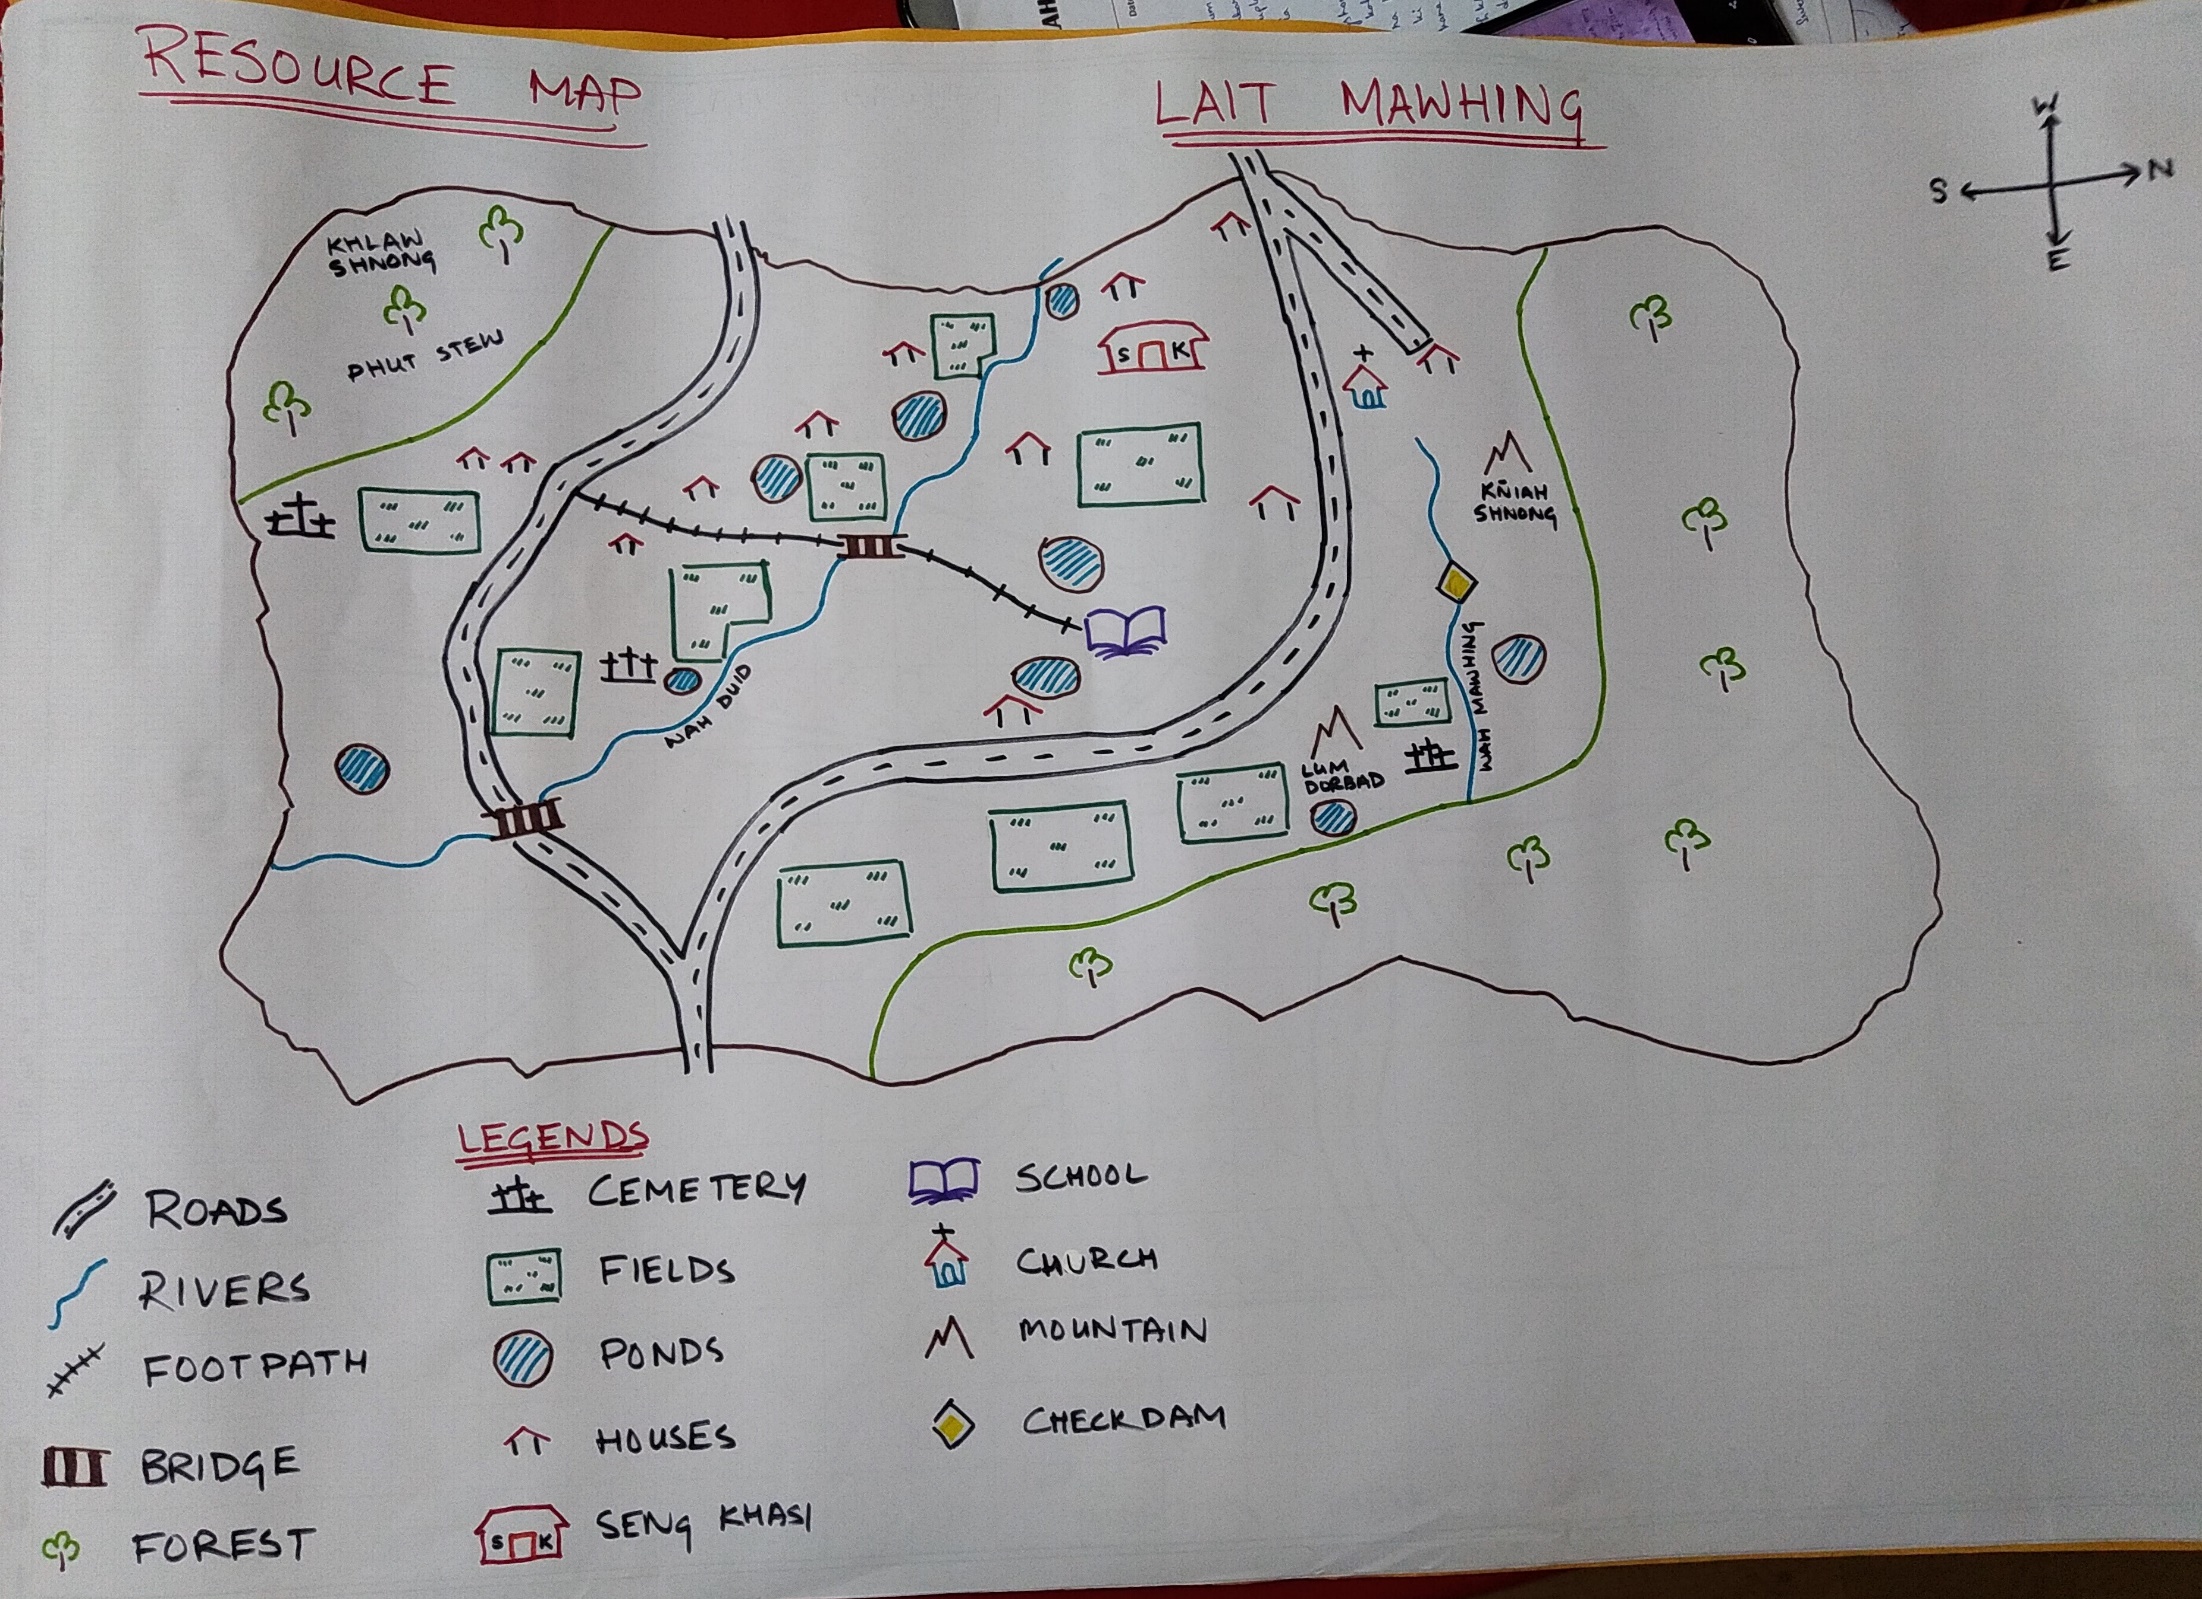 RESOURCE MAP
LAIT MAWHING
W
S
N
E
KHLAW
SHNONG
PHUT STEW
S K
KÑIAH
SHNONG
WAH MAWHING
WAH DUID
LUM
DORBAD
LEGENDS
ROADS
RIVERS
FOOTPATH
BRIDGE
FOREST
CEMETERY
FIELDS
PONDS
HOUSES
S K
SENG KHASI
SCHOOL
CHURCH
MOUNTAIN
CHECKDAM